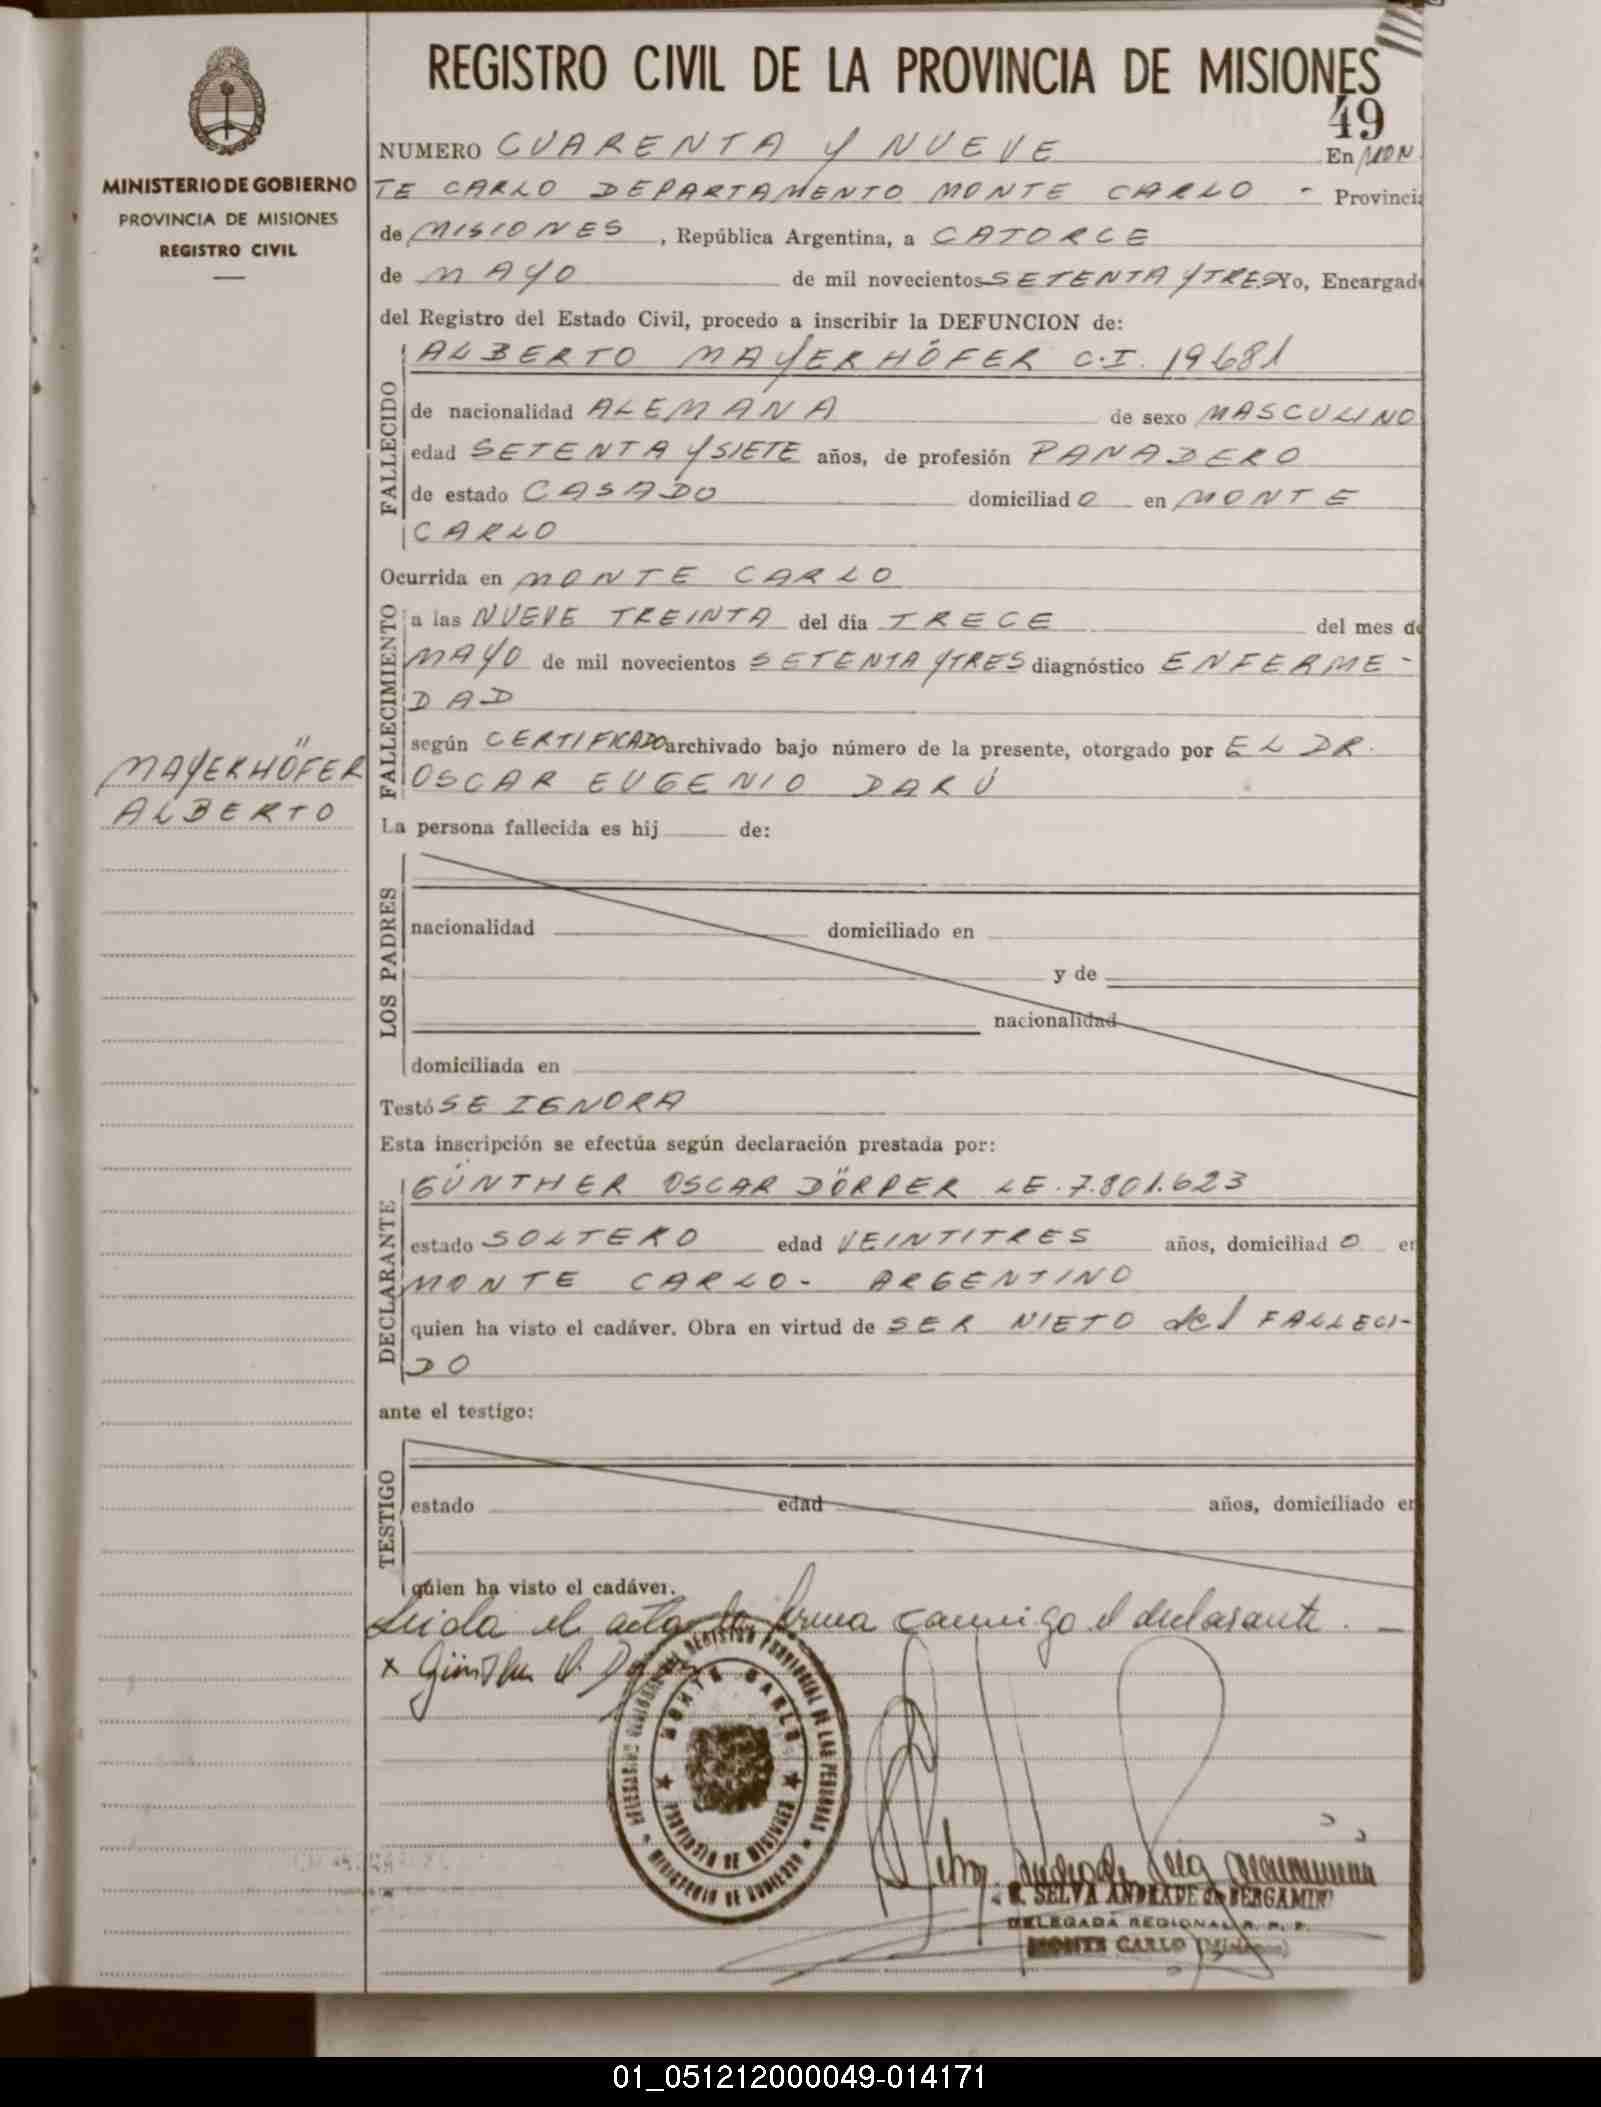 REGISTRO CIVIL DE LA PROVINCIA DE MISIONES
49
MINISTERIO DE GOBIERNO
PROVINCIA DE MISIONES
REGISTRO CIVIL
NUMERO CUARENTA Y NUEVE En MON
TE CARLO DEPARTAMENTO MONTE CARLO - Provincia
de MISIONES, República Argentina, a CATORCE
de MAYO de mil novecientos SETENTA Y TRES Yo, Encargado
del Registro del Estado Civil, procedo a inscribir la DEFUNCION de:
FALLECIDO
ALBERTO MAYERHÓFER C.I. 19681
de nacionalidad ALEMANA de sexo MASCULINO
edad SETENTA Y SIETE años, de profesión PANADERO
de estado CASADO domiciliad O en MONTE
CARLO
FALLECIMIENTO
Ocurrida en MONTE CARLO
a las NUEVE TREINTA del día TRECE del mes de
MAYO de mil novecientos SETENTA Y TRES diagnóstico ENFERME-
DAD
según CERTIFICADO archivado bajo número de la presente, otorgado por EL DR.
OSCAR EUGENIO DARÚ
MAYERHÖFER
ALBERTO
La persona fallecida es hij de:
LOS PADRES
nacionalidad domiciliado en
y de
nacionalidad
domiciliada en
Testó SE IGNORA
Esta inscripción se efectúa según declaración prestada por:
DECLARANTE
GÜNTHER OSCAR DÖRPER LE. 7.801.623
estado SOLTERO edad VEINTITRES años, domiciliad O en
MONTE CARLO- ARGENTINO
quien ha visto el cadáver. Obra en virtud de SER NIETO del FALLECI-
DO
ante el testigo:
TESTIGO
estado edad años, domiciliado en
quien ha visto el cadáver.
Leida el acta la firma conmigo el declarante. —
x Günther O.
REGISTRO PROVINCIAL DE LAS PERSONAS
MONTE CARLO
PROVINCIA DE MISIONES
MINISTERIO DE GOBIERNO
SELVA ANDRADE de BERGAMINI
DELEGADA REGIONAL R. P. P.
MONTE CARLO (Misiones)
01_051212000049-014171